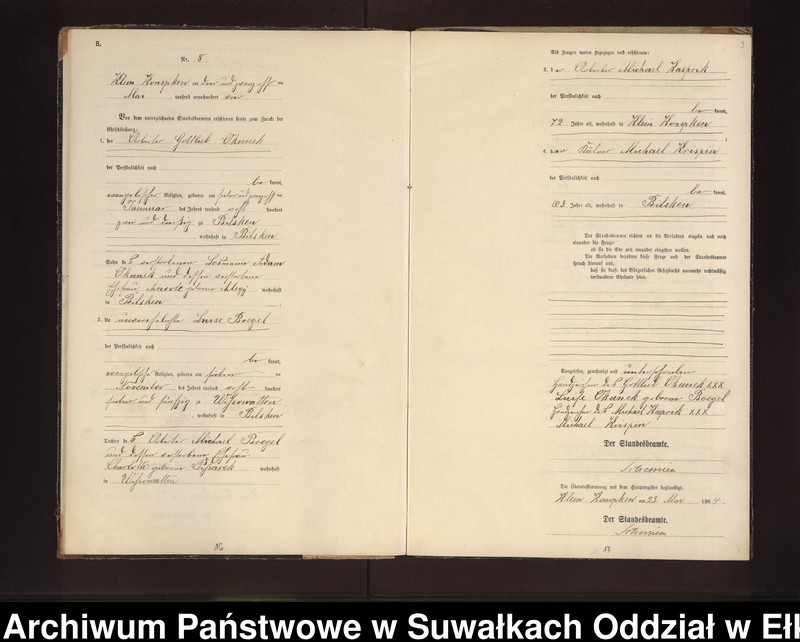 B.
Nr. 5
Klein Konopken am drei und zwanzigsten
Mai tausend neunhundert vier
Vor dem unterzeichneten Standesbeamten erschienen heute zum Zwecke der
Eheschließung:
1. der Arbeiter Gottlieb Okunek
der Persönlichkeit nach
be kannt,
evangelischer Religion, geboren am sieben und zwanzigsten
Januar des Jahres tausend acht hundert
zwei und dreißig zu Bilsken
wohnhaft in Bilsken
Sohn des verstorbenen Losmanns Adam
Okunek und dessen verstorbene
Ehefrau geborene wohnhaft
in Bilsken
2. die unverehelichte Luise Boegel
der Persönlichkeit nach
be kannt,
evangelische Religion, geboren am sieben
November des Jahres tausend acht hundert
sieben und fünfzig zu
wohnhaft in Bilsken
Tochter des Arbeiter Michael Boegel
und dessen verstorbene Ehefrau
Charlotte geborene wohnhaft
in
Als Zeugen waren zugezogen und erschienen:
3. der Arbeiter Michael Kasprek
der Persönlichkeit nach
be kannt,
72 Jahre alt, wohnhaft in Klein Konopken
4. der Michael Krispin
der Persönlichkeit nach
be kannt,
63 Jahre alt, wohnhaft in Bilsken
Der Standesbeamte richtete an die Verlobten einzeln und nach
einander die Frage:
ob sie die Ehe mit einander eingehen wollen.
Die Verlobten bejahten diese Frage und der Standesbeamte
sprach hierauf aus,
daß sie kraft des Bürgerlichen Gesetzbuchs nunmehr rechtmäßig
verbundene Eheleute seien.
Vorgelesen, genehmigt und unterschrieben
Handzeichen des Gottlieb Okunek XXX
Luise Okunek geborene Boegel
Handzeichen des Michael Kasprek XXX
Michael Krispin
Der Standesbeamte.
Die Übereinstimmung mit dem Hauptregister beglaubigt.
Klein Konopken am 23. Mai 1904.
Der Standesbeamte.
Archiwum Państwowe w Suwałkach Oddział w Eł